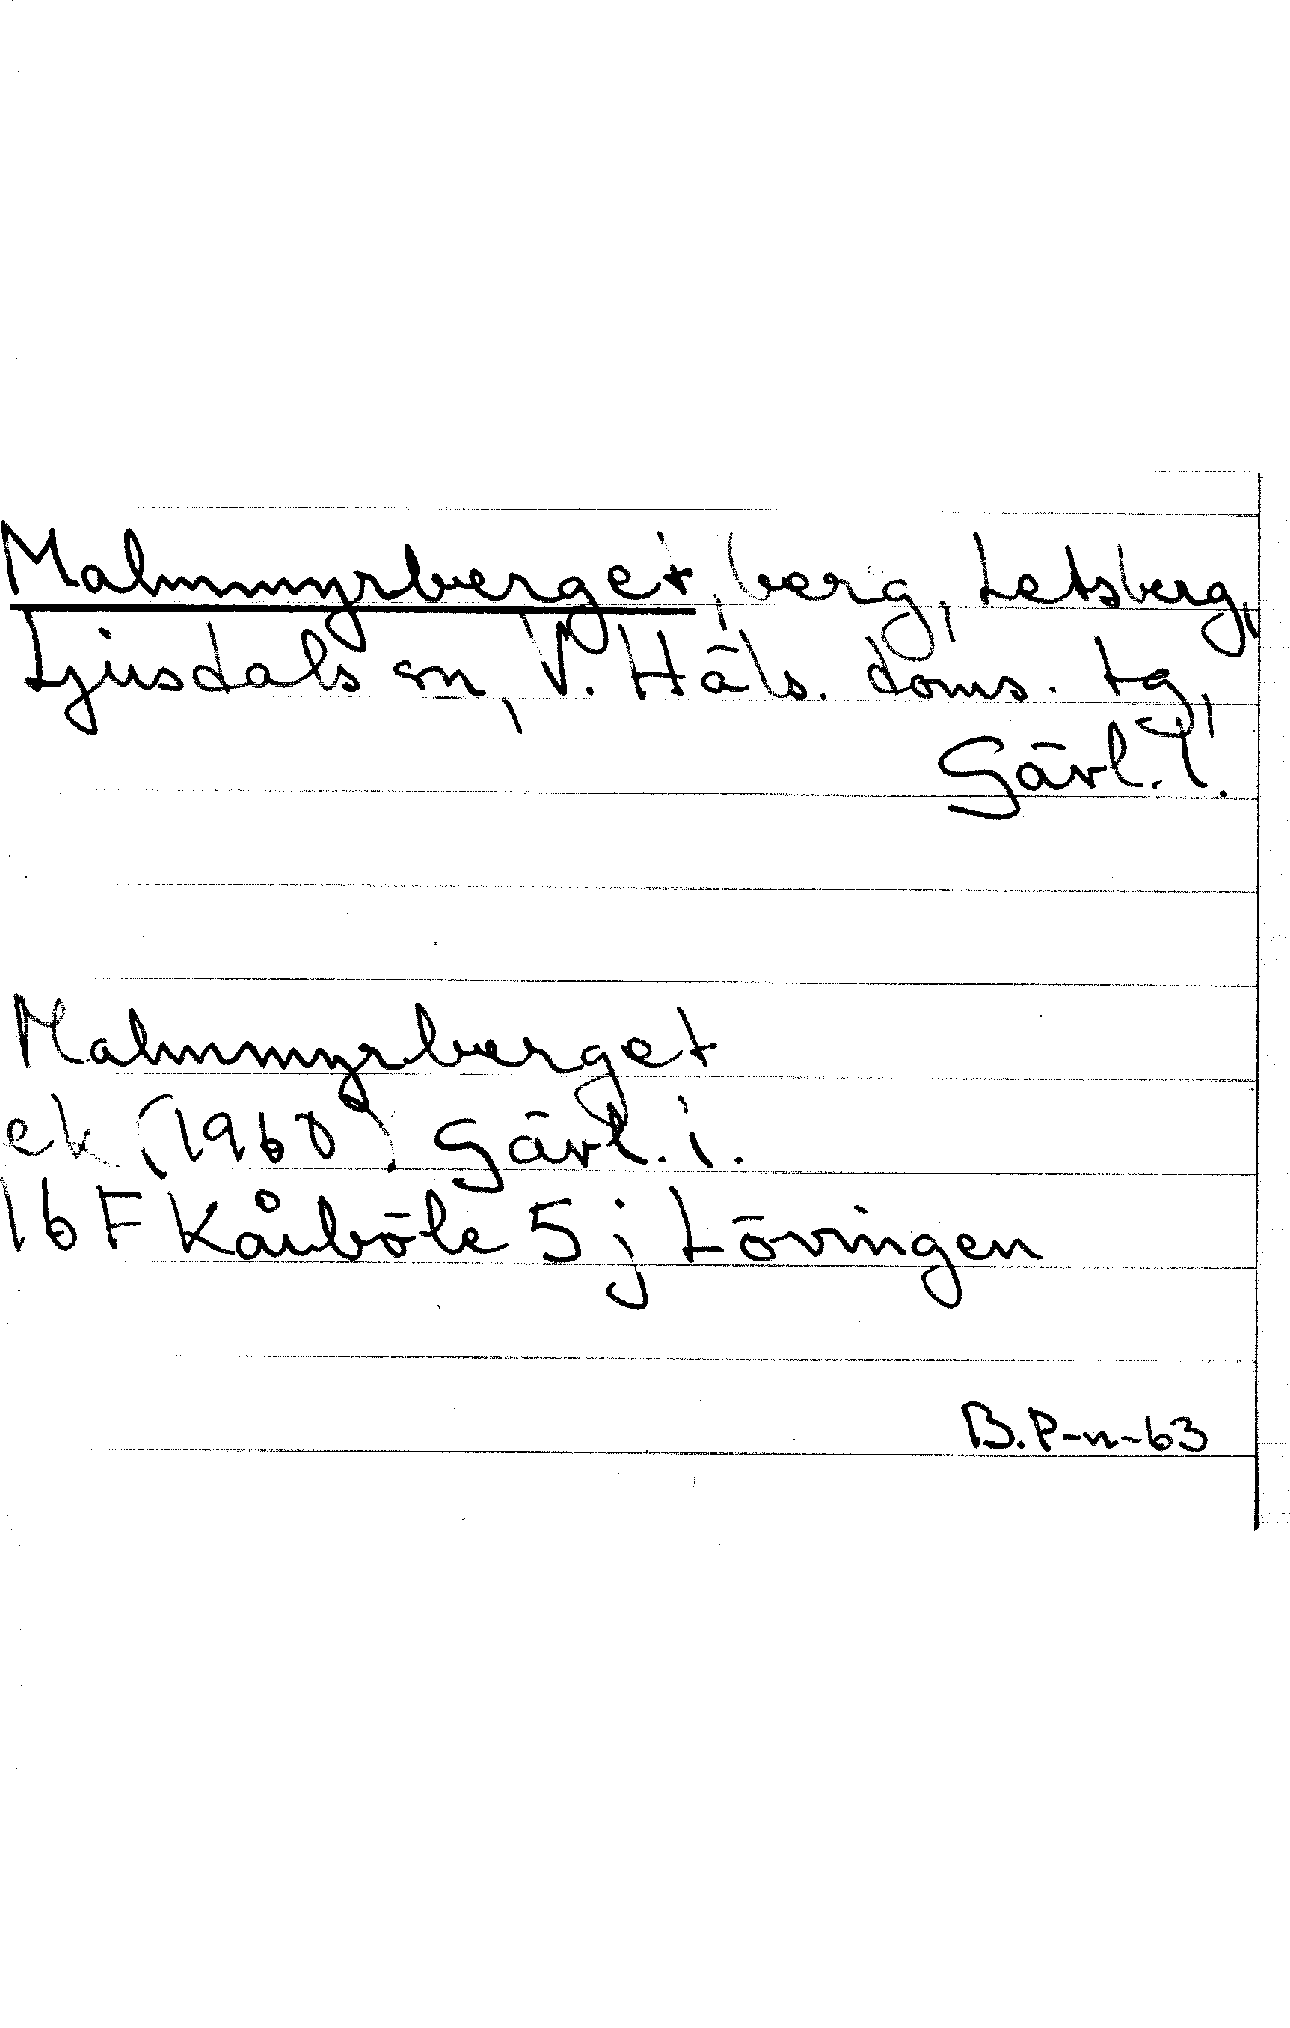 Malmmyrberget, berg, Letsberg,
Ljusdals sn, V. Häls. doms. tg,
Gävl. l.
Malmmyrberget
ek (1960) Gävl. l.
16 F Kårböle 5 j Lövingen
B.P-n-63